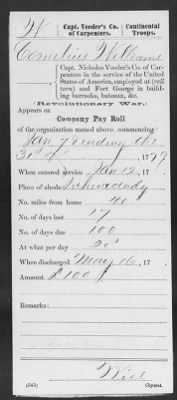 W Capt. Veeder's Co. of Carpenters. Continental Troops.
Cornelius Williams
Capt. Nicholas Veeder's Co. of Carpenters
in the service of the United
States of America, employed at (roll
torn) and Fort George in building
barracks, batteaus, &c.
(Revolutionary War.)
Appears on
Company Pay Roll
of the organization named above, commencing
Jan 7 & ending
31st 1779
When entered service Jan 12, 17
Place of abode Schenectady
No. miles from home 40
No. of days lost 17
No. of days due 100
At what per day 20s
When discharged May 16, 17
Amount £100
Remarks:
Wise
(565) Copyist.